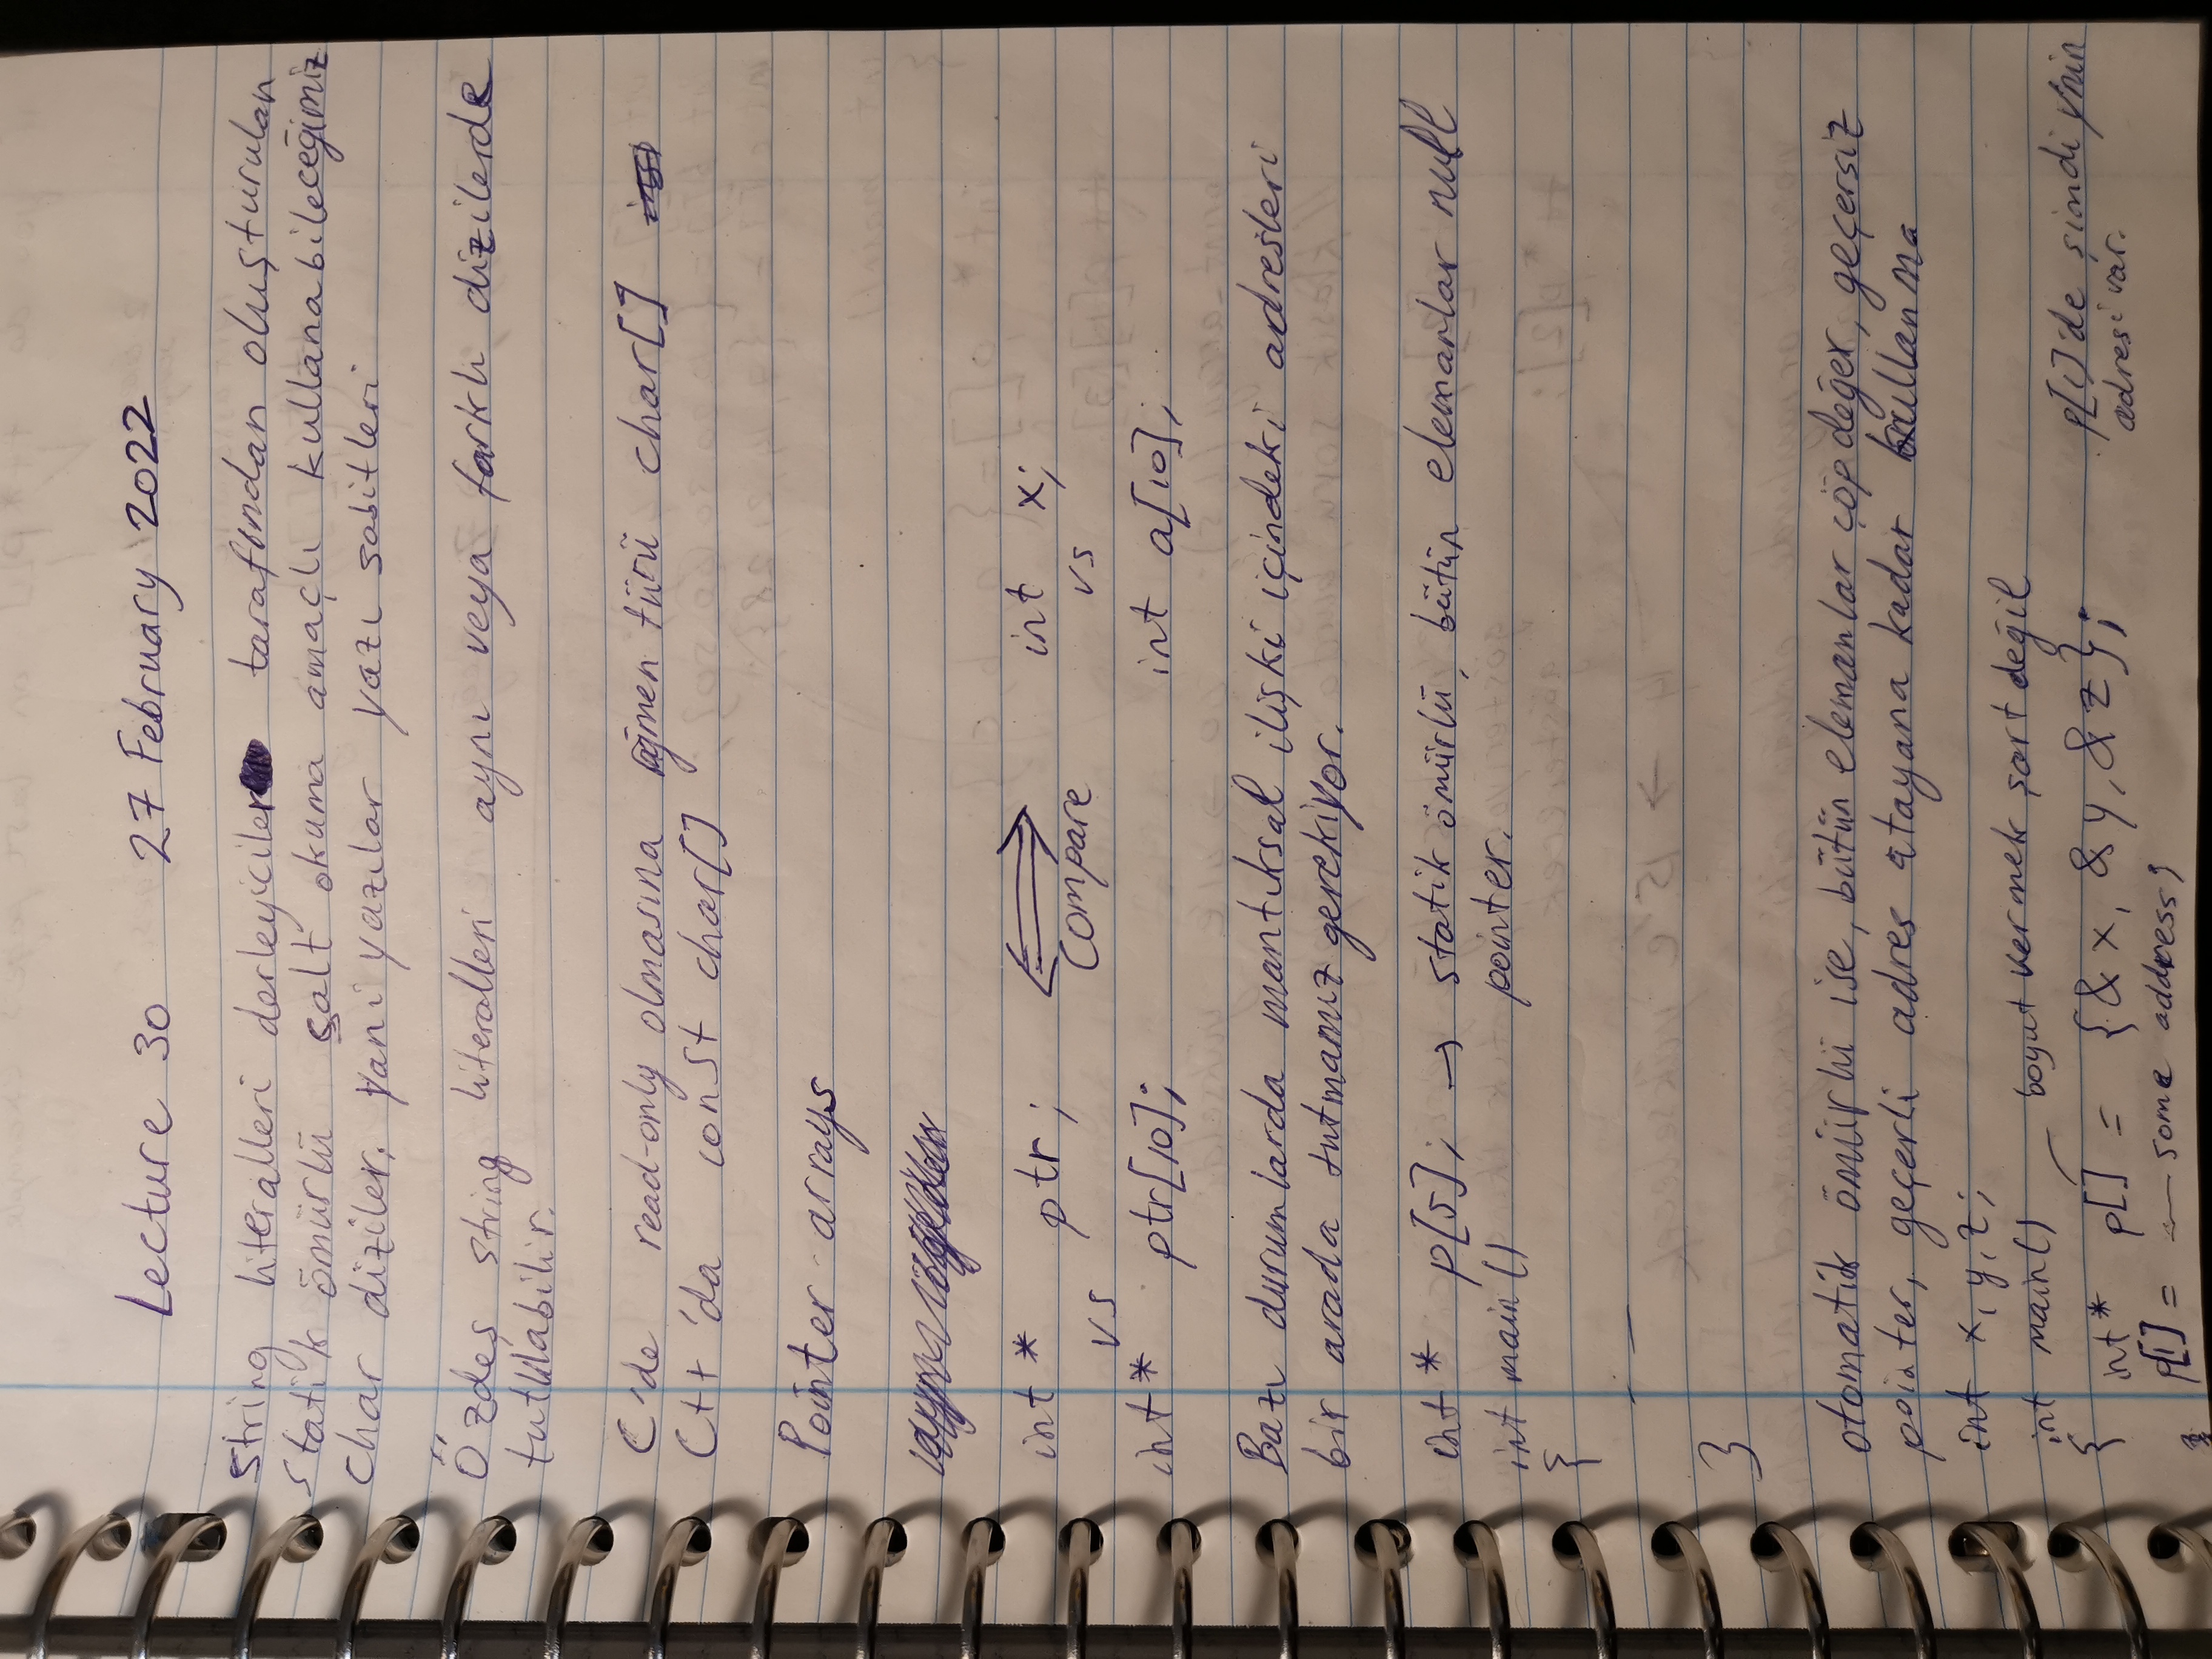 Lecture 30 27 February 2022
String literalleri derleyiciler tarafından oluşturulan
statik ömürlü salt okuma amaçlı kullanabileceğimiz
char diziler. yani yazılar yazı sabitleri
Özdeş string literalleri aynı veya farklı dizilerde
tutulabilir.
C'de read-only olmasına rağmen türü char[]
C++'da const char[]
Pointer arrays
int * ptr; Compare int x;
vs vs
int* ptr[10]; int a[10];
Bazı durumlarda mantıksal ilişki içindeki adresleri
bir arada tutmamız gerekiyor.
int * p[5]; → statik ömürlü, bütün elemanlar null
int main() pointer.
{
— —
}
otomatik ömürlü ise, bütün elemanlar çöp değer, geçersiz
pointer, geçerli adres atayana kadar kullanma
int x, y, z;
int main() boyut vermek şart değil
{ int* p[] = {&x, &y, &z}; p[1]'de şimdi y'nin
adresi var.
p[1] = — some address;